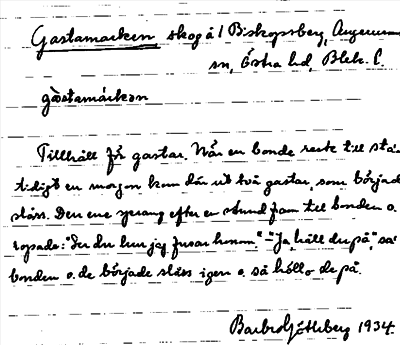 Gastamarken skog å/ Biskopsberg, Augerums
sn, Östra hd, Blek. l.
gàstamárkan
Tillhåll för gastar. När en bonde reste till sta'n
tidigt en morgon kom där ut två gastar, som började
slåss. Den ene sprang efter en stund fram till bonden o.
ropade: "Ser du hur jag furar honom". "Ja, håll du på", sa'
bonden o. de började slåss igen o. så höllo de på.
Barbro Götlberg 1934.